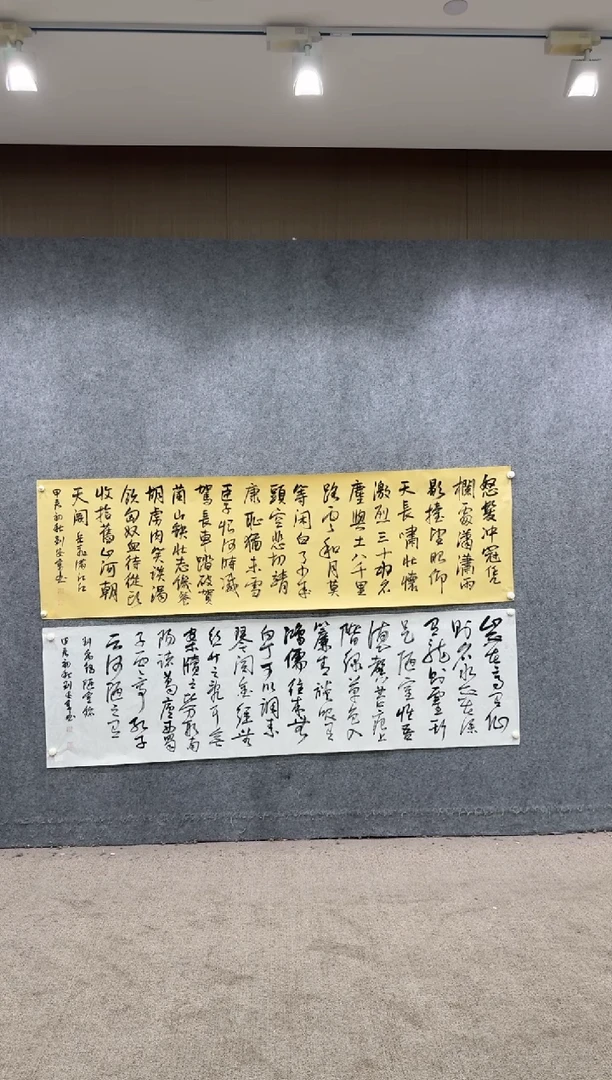 怒髮冲冠凭
欄處潇潇雨
歇擡望眼仰
天長嘯壯懷
激烈三十功名
塵與土八千里
路雲和月莫
等闲白了少年
頭空悲切靖
康恥猶未雪
臣子恨何時滅
駕長車踏破賀
蘭山缺壯志饑餐
胡虜肉笑談渴
飲匈奴血待從頭
收拾舊山河朝
天闕 岳飛满江红
甲辰初秋刘
山不在高有仙
则名水不在深
有龍则靈斯
是陋室惟吾
德馨苔痕上
階绿草色入
簾青談笑有
鴻儒往来無
白丁可以調素
琴閲金經無
丝竹之亂耳無
案牘之劳形南
陽諸葛廬西蜀
子雲亭孔子
云何陋之有
刘禹锡陋室铭
甲辰初秋刘